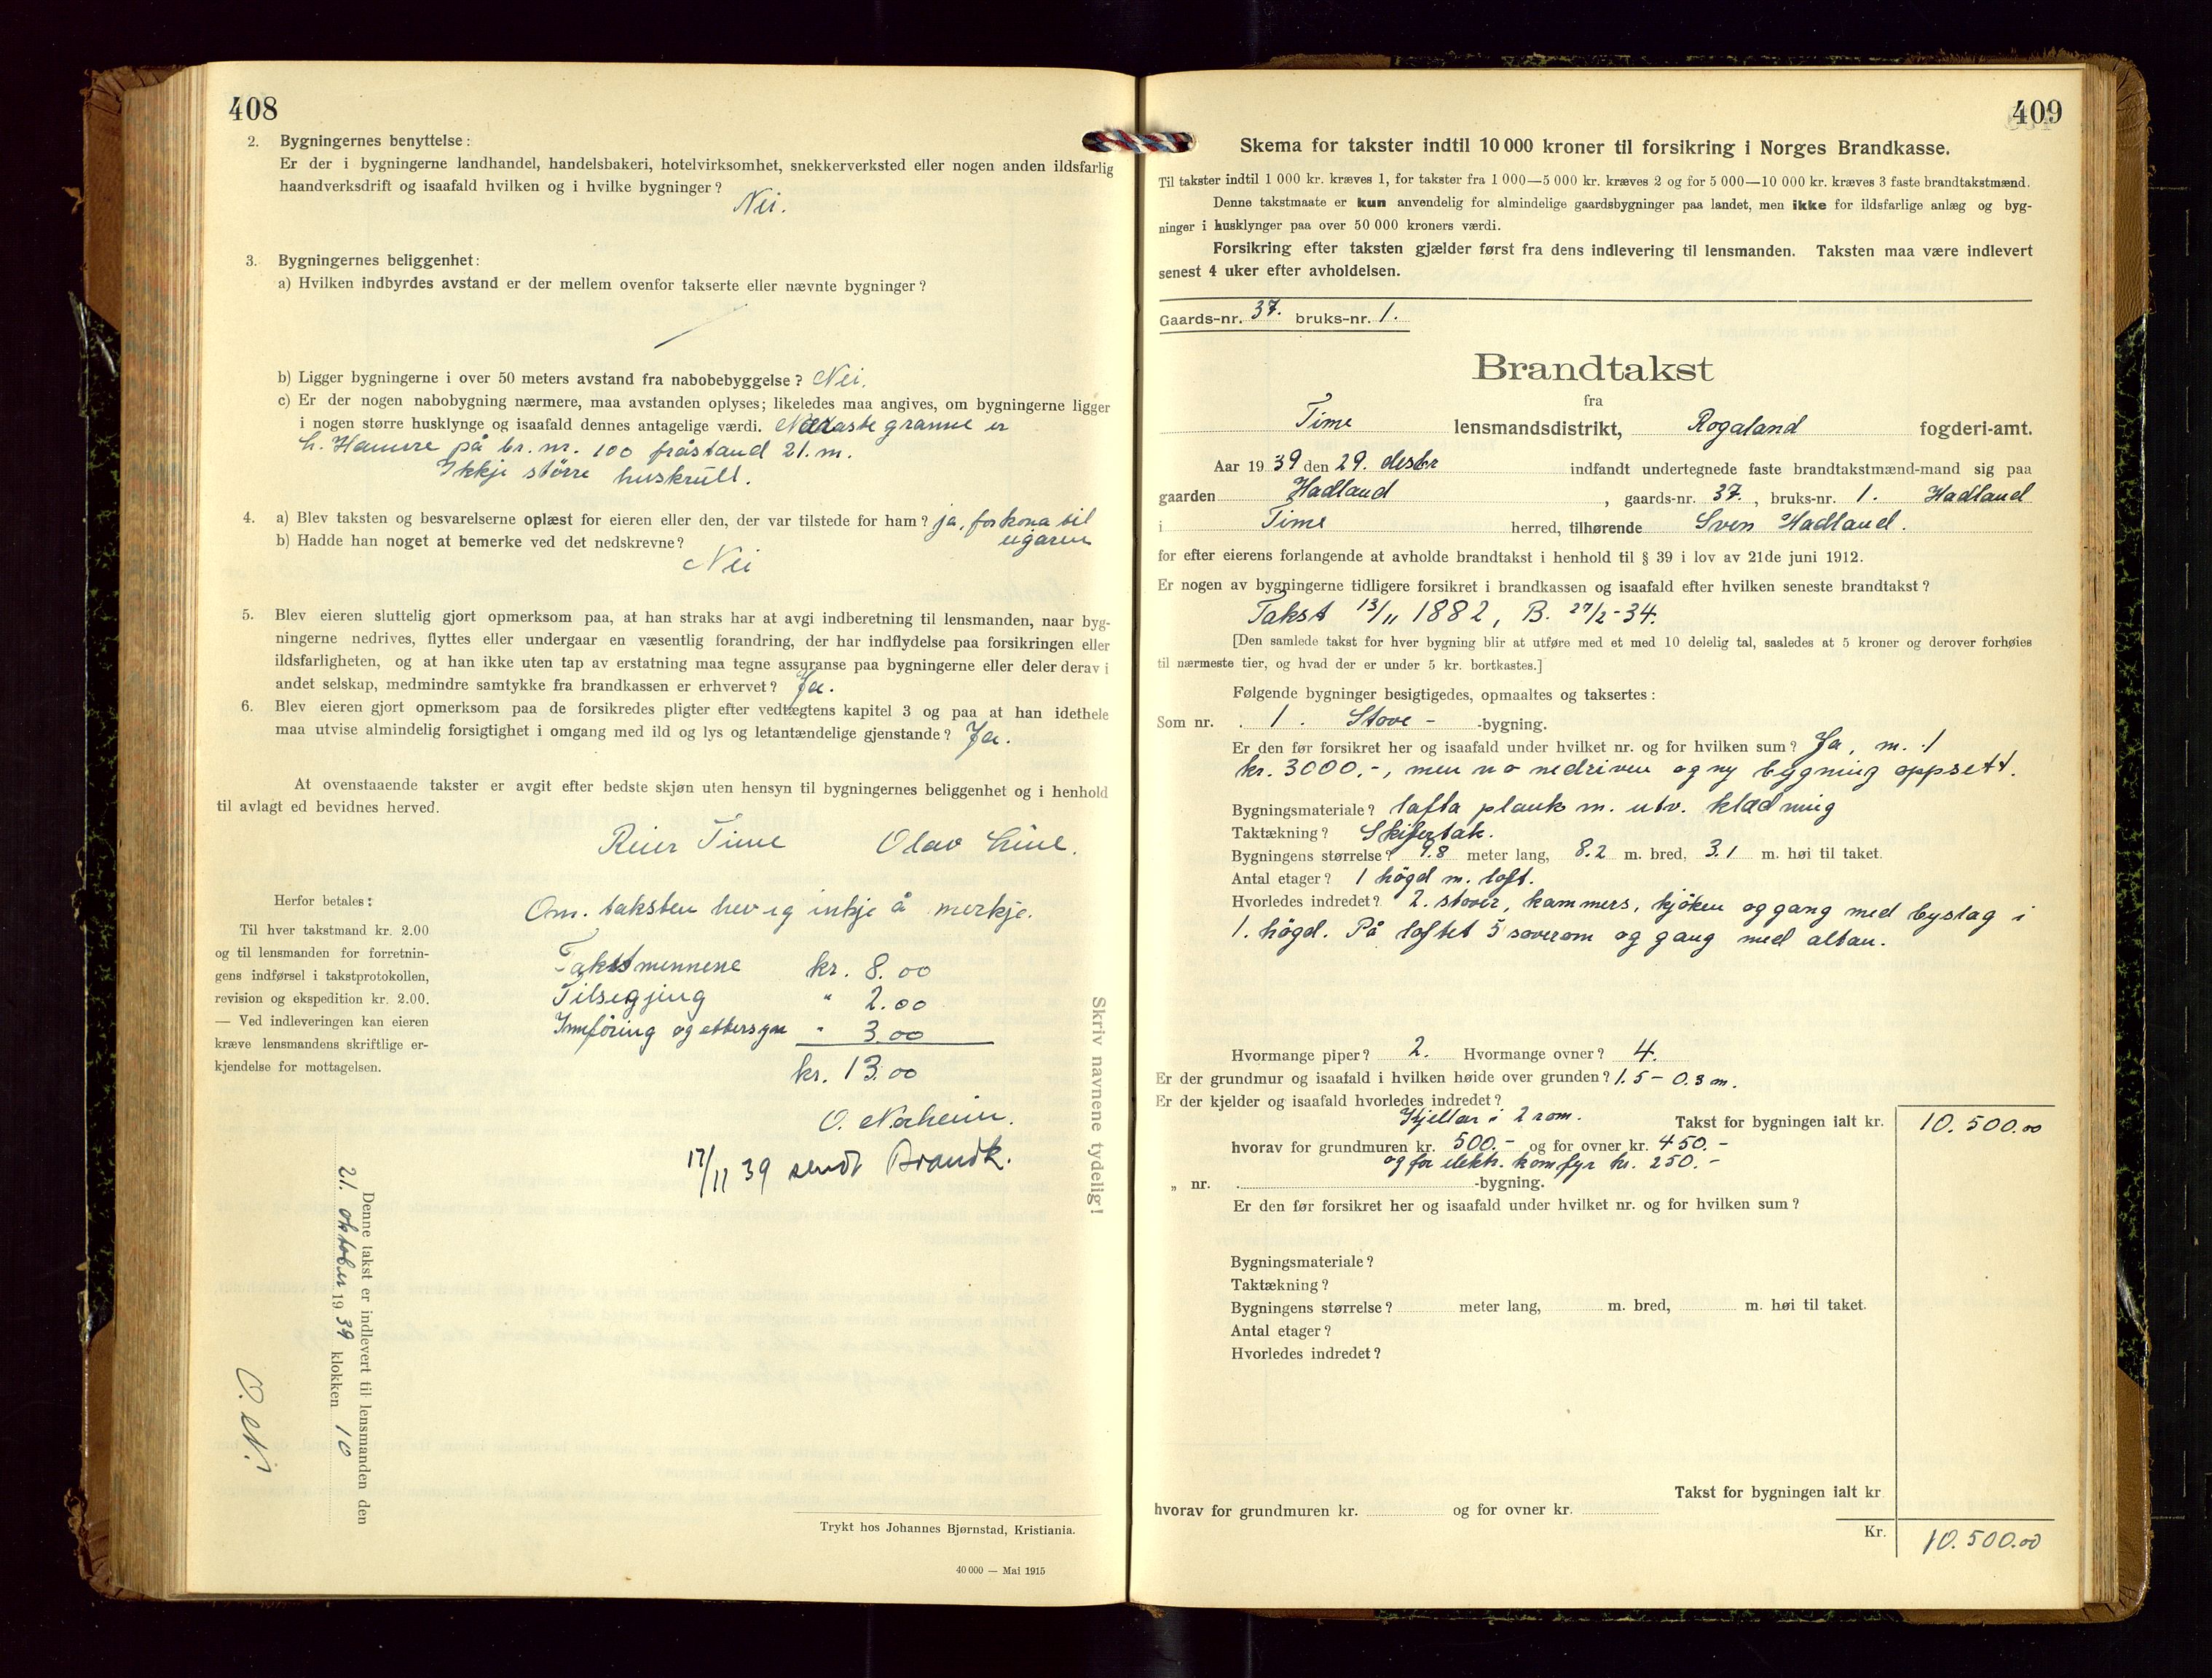 408
2. Bygningernes benyttelse:
Er der i bygningerne landhandel, handelsbakeri, hotelvirksomhet, snekkerverksted eller nogen anden ildsfarlig
haandverksdrift og isaafald hvilken og i hvilke bygninger?
Nei.
3. Bygningernes beliggenhet:
a) Hvilken indbyrdes avstand er der mellem ovenfor takserte eller nævnte bygninger?
b) Ligger bygningerne i over 50 meters avstand fra nabobebyggelse? Nei.
c) Er der nogen nabobygning nærmere, maa avstanden oplyses; likeledes maa angives, om bygningerne ligger
i nogen større husklynge og isaafald dennes antagelige værdi. Næraste granne er
h. Hamre på br. nr. 100 fråstand 21. m.
Ikkje større huskrull.
4. a) Blev taksten og besvarelserne oplæst for eieren eller den, der var tilstede for ham? ja, for kona til
eigaren
b) Hadde han noget at bemerke ved det nedskrevne?
Nei
5. Blev eieren sluttelig gjort opmerksom paa, at han straks har at avgi indberetning til lensmanden, naar byg-
ningerne nedrives, flyttes eller undergaar en væsentlig forandring, der har indflydelse paa forsikringen eller
ildsfarligheten, og at han ikke uten tap av erstatning maa tegne assuranse paa bygningerne eller deler derav i
andet selskap, medmindre samtykke fra brandkassen er erhvervet? Ja.
6. Blev eieren gjort opmerksom paa de forsikredes pligter efter vedtægtens kapitel 3 og paa at han idethele
maa utvise almindelig forsigtighet i omgang med ild og lys og letantændelige gjenstande? Ja.
At ovenstaaende takster er avgit efter bedste skjøn uten hensyn til bygningernes beliggenhet og i henhold
til avlagt ed bevidnes herved.
Reier Time Olav Line.
Herfor betales:
Til hver takstmand kr. 2.00
og til lensmanden for forretnin-
gens indførsel i takstprotokollen,
revision og ekspedition kr. 2.00.
— Ved indleveringen kan eieren
kræve lensmandens skriftlige er-
kjendelse for mottagelsen.
Om. taksten hev eg inkje å merkje.
Takstmennene kr. 8.00
Tilsegjing " 2.00
Innföring og ettersyn " 3.00
kr. 13.00
O. Nerheim.
17/11 39 sendt Brandk.
Skriv navnene tydelig!
Denne takst er indlevert til lensmanden den
21. oktober 1939 klokken 10
O. N.
Trykt hos Johannes Bjørnstad, Kristiania.
40 000 — Mai 1915
409
Skema for takster indtil 10 000 kroner til forsikring i Norges Brandkasse.
Til takster indtil 1 000 kr. kræves 1, for takster fra 1 000—5 000 kr. kræves 2 og for 5 000—10 000 kr. kræves 3 faste brandtakstmænd.
Denne takstmaate er kun anvendelig for almindelige gaardsbygninger paa landet, men ikke for ildsfarlige anlæg og byg-
ninger i husklynger paa over 50 000 kroners værdi.
Forsikring efter taksten gjælder først fra dens indlevering til lensmanden. Taksten maa være indlevert
senest 4 uker efter avholdelsen.
Gaards-nr. 37. bruks-nr. 1.
Brandtakst
fra
Time lensmandsdistrikt, Rogaland fogderi-amt.
Aar 1939 den 29. desbr indfandt undertegnede faste brandtakstmænd-mand sig paa
gaarden Hadland, gaards-nr. 37., bruks-nr. 1. Hadland
i Time herred, tilhørende Sven Hadland.
for efter eierens forlangende at avholde brandtakst i henhold til § 39 i lov av 21de juni 1912.
Er nogen av bygningerne tidligere forsikret i brandkassen og isaafald efter hvilken seneste brandtakst?
Takst 13/11 1882, B. 27/2-34.
[Den samlede takst for hver bygning blir at utføre med et med 10 delelig tal, saaledes at 5 kroner og derover forhøies
til nærmeste tier, og hvad der er under 5 kr. bortkastes.]
Følgende bygninger besigtigedes, opmaaltes og taksertes:
Som nr. 1. Stove- -bygning.
Er den før forsikret her og isaafald under hvilket nr. og for hvilken sum? Ja, m. 1
kr. 3000.-, men no nedriven og ny bygning oppsett.
Bygningsmateriale? lafta plank m. utv. klædning
Taktækning? Skifertak.
Bygningens størrelse? 9.8 meter lang, 8.2 m. bred, 3.1 m. høi til taket.
Antal etager? 1 högd m. loft.
Hvorledes indredet? 2. stover, kammers, kjöken og gang med byslag i
1. högd. På loftet 5 soverom og gang med altan.
Hvormange piper? 2. Hvormange ovner? 4.
Er der grundmur og isaafald i hvilken høide over grunden? 1.5 - 0.3 m.
Er der kjelder og isaafald hvorledes indredet?
Kjellar i 2 rom. Takst for bygningen ialt kr. 10.500.00
hvorav for grundmuren kr. 500.- og for ovner kr. 450.-
og for elektr. komfyr kr. 250.-
„ nr. -bygning.
Er den før forsikret her og isaafald under hvilket nr. og for hvilken sum?
Bygningsmateriale?
Taktækning?
Bygningens størrelse? meter lang, m. bred, m. høi til taket.
Antal etager?
Hvorledes indredet?
Takst for bygningen ialt kr
hvorav for grundmuren kr. og for ovner kr.
Kr. 10.500.00